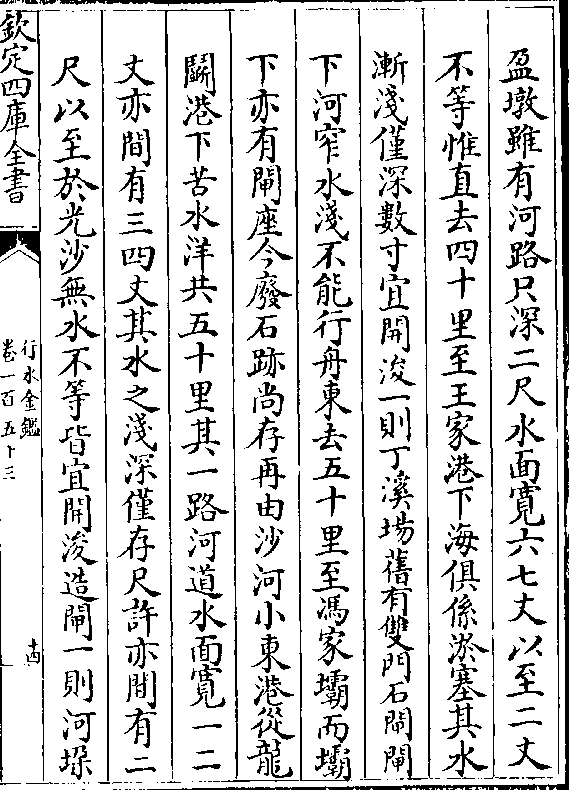 盈墩雖有河路只深二尺水面寛六七丈以至二丈
不等惟直去四十里至王家港下海俱係淤塞其水
漸淺僅深數寸宜開浚一則丁溪場舊有雙門石閘閘
下河窄水淺不能行舟東去五十里至馮家壩而壩
下亦有閘座今廢石跡尚存再由沙河小東港從龍
鬭港下苦水洋共五十里其一路河道水面寛一二
丈亦間有三四丈其水之淺深僅存尺許亦間有二
尺以至於光沙無水不等皆宜開浚造閘一則河垜
欽定四庫全書
行水金鑑
卷一百五十三
十四